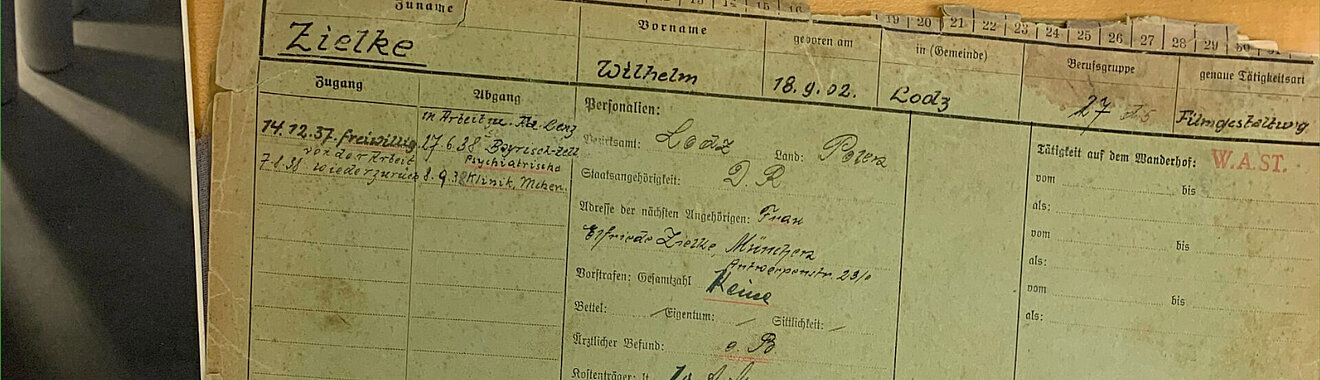 Zuname
Zielke
Vorname
Wilhelm
geboren am
18.9.02.
in (Gemeinde)
Lodz
Berufsgruppe
27
genaue Tätigkeitsart
Filmgestaltung
13 14 15 16
19 20 21 22 23 24 25 26 27 28 29 30
Zugang
14.12.37. freiwillig
von der Arbeit
7.8.38 wiederzurück
Abgang
in Arbeit
17.6.38 Bayrisch-Zell
Psychiatrische
8.9.38 Klinik, Mchen.
Personalien:
Bezirksamt: Lodz Land: Polen
Staatsangehörigkeit: D. R
Adresse der nächsten Angehörigen: Frau
Elfriede Zielke, München
Antwerpenstr. 23/0
Vorstrafen; Gesamtzahl Keine
Bettel: / Eigentum: / Sittlichkeit: /
Ärztlicher Befund: o B
Kostenträger:
Tätigkeit auf dem Wanderhof: W.A.ST.
vom bis
als:
vom bis
als:
vom bis
als: